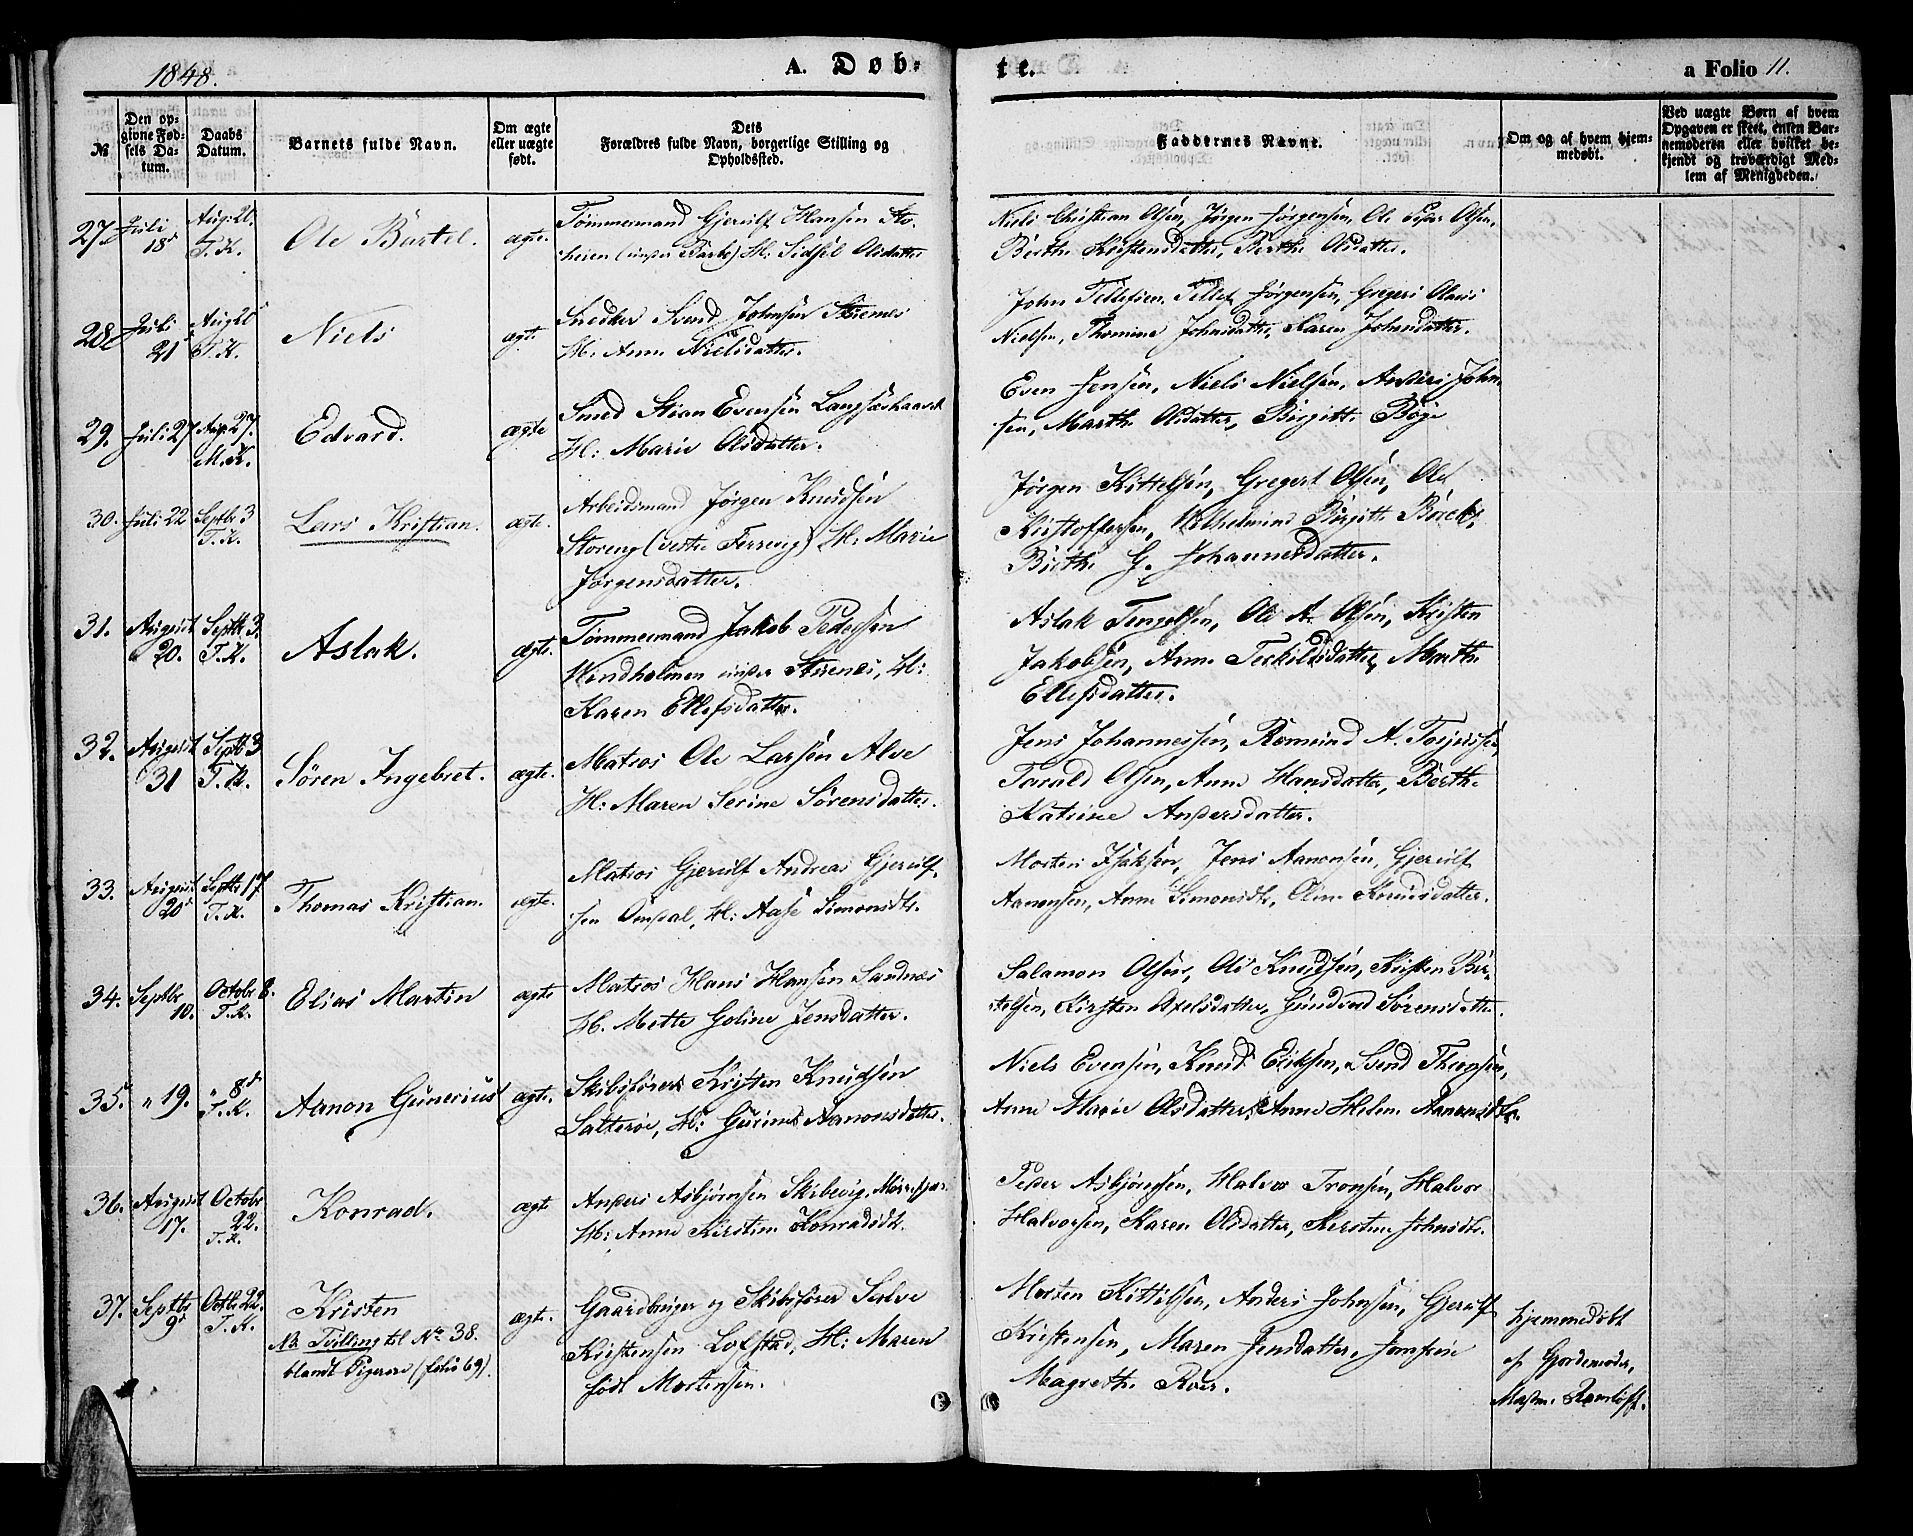 1848.
A. Døb-
te.
a Folio 11.
№
Den op-
givne Fød-
sels Da-
tum.
Daabs
Datum.
Barnets fulde Navn.
Om ægte
eller uægte
født.
Dets
Forældres fulde Navn, borgerlige Stilling og
Opholdssted.
Faddernes Navne.
Om og af hvem hjem-
medøbt.
Ved uægte Børn af hvem
Opgaven er skeet, enten Bar-
nemoderen eller hvilket be-
kjendt og troværdigt Med-
lem af Menigheden.
27 Juli 18d Aug: 20. T.K. Ole Bertel. ægte.
Tømmermand Gjerulf Hansen
heien (under Barbo) H: Sidsel Olsdatter
Niels Christian Olsen, Jørgen Jørgensen, Ole Peder Olsen,
Berthe Kristensdatter, Berthe Olsdatter.
28 Juli 21 Aug 20 T.K. Niels ægte
Snedker Svend Johnsen Strømes
H: Anne Nielsdatter.
John Tellefsen, Tellef Jørgensen, Gregers Olaus
Nielsen, Thomine Johnsdatter, Karen Johnsdatter.
29. Juli 27 Aug. 27. M.K. Edvard. ægte
Smed Stian Evensen Langsæ
H: Marie Olsdatter.
Even Jensen, Niels Nielsen, Anders John-
sen, Marthe Olsdatter, Birgitte Bøge
30. Juli 22 Septbr 3 T.K. Lars Kristian. ægte.
Arbeidsmand Jørgen Knudsen
Storeng (vestre Ferrevig) H: Marie
Jørgensdatter.
Jørgen Kittelsen, Gregert Olsen, Ole
Kristoffersen, Wilhelmine Birgitte Bøick,
Birthe G. Johannesdatter.
31. August 20. Septb. 3. T.K. Aslak. ægte.
Tømmermand Jakob Pedersen
Windholmen under Strenes, H:
Karen Ellefsdatter.
Aslak Tengelsen, Ole A. Olsen, Kristen
Jakobsen, Anne Terkildsdatter, Marthe
Ellefsdatter.
32. August 31 Septb 3 T.K. Søren Ingebret. ægte.
Matros Ole Larsen Alve
H: Maren Serine Sørensdatter.
Jens Johannessen, Romund A. Torjussen,
Tarald Olsen, Anne Hansdatter, Berthe
Katrine Andersdatter.
33. August 20d Septbr 17 T.K. Thomas Kristian. ægte.
Matros Gjerulf Andreas Gjerulf-
sen Omdal, H: Aase Simonsdtr.
Morten Isaksen, Jens Aanonsen, Gjerulf
Aanonsen, Anne Simonsdtr, Oline Knudsdatter.
34. Septbr 10. Octobr 8. T.K. Elias Martin ægte
Matros Hans Hansen Sandnæs
H. Mette Goline Jensdatter.
Salamon Olsen, Ole Knudsen, Kristen Ber-
telsen, Kirsten Axelsdatter, Gundvod Sørensdatter.
35. " 19. " 8d T.K. Aanon Gunerius ægte.
Skibsfører Kristen Knudsen
Salterøe, H: Gurine Aanonsdatter.
Niels Evensen, Knud Eriksen, Svend Thorsen,
Anne Marie Olsdatter, Anne Helene Aanonsdtr.
36. August 17. Octobr 22. T.K. Konrad. ægte
Anders Asbjørnsen Skibevig,
H: Anne Kirstine Konradsdtr.
Peder Asbjørnsen, Halvor Tronsen, Halvor
Halvorsen, Karen Olsdatter, Kerstine Johnsdtr.
37. Septbr 9d Octbr 22. T.K. Kristen ægte.
NB Tvilling til No 38.
blandt Pigerne (folio 69).
Gaardbruger og Skibsfører Sselve
Kristensen Lofstad, H: Maren
født Mortensen.
Morten Kittelsen, Anders Johnsen, Gjerulf
Kristensen, Maren Jensdatter, Jomfrue
Magrethe Roer.
hjemmedøbt
af Gjordemoder,